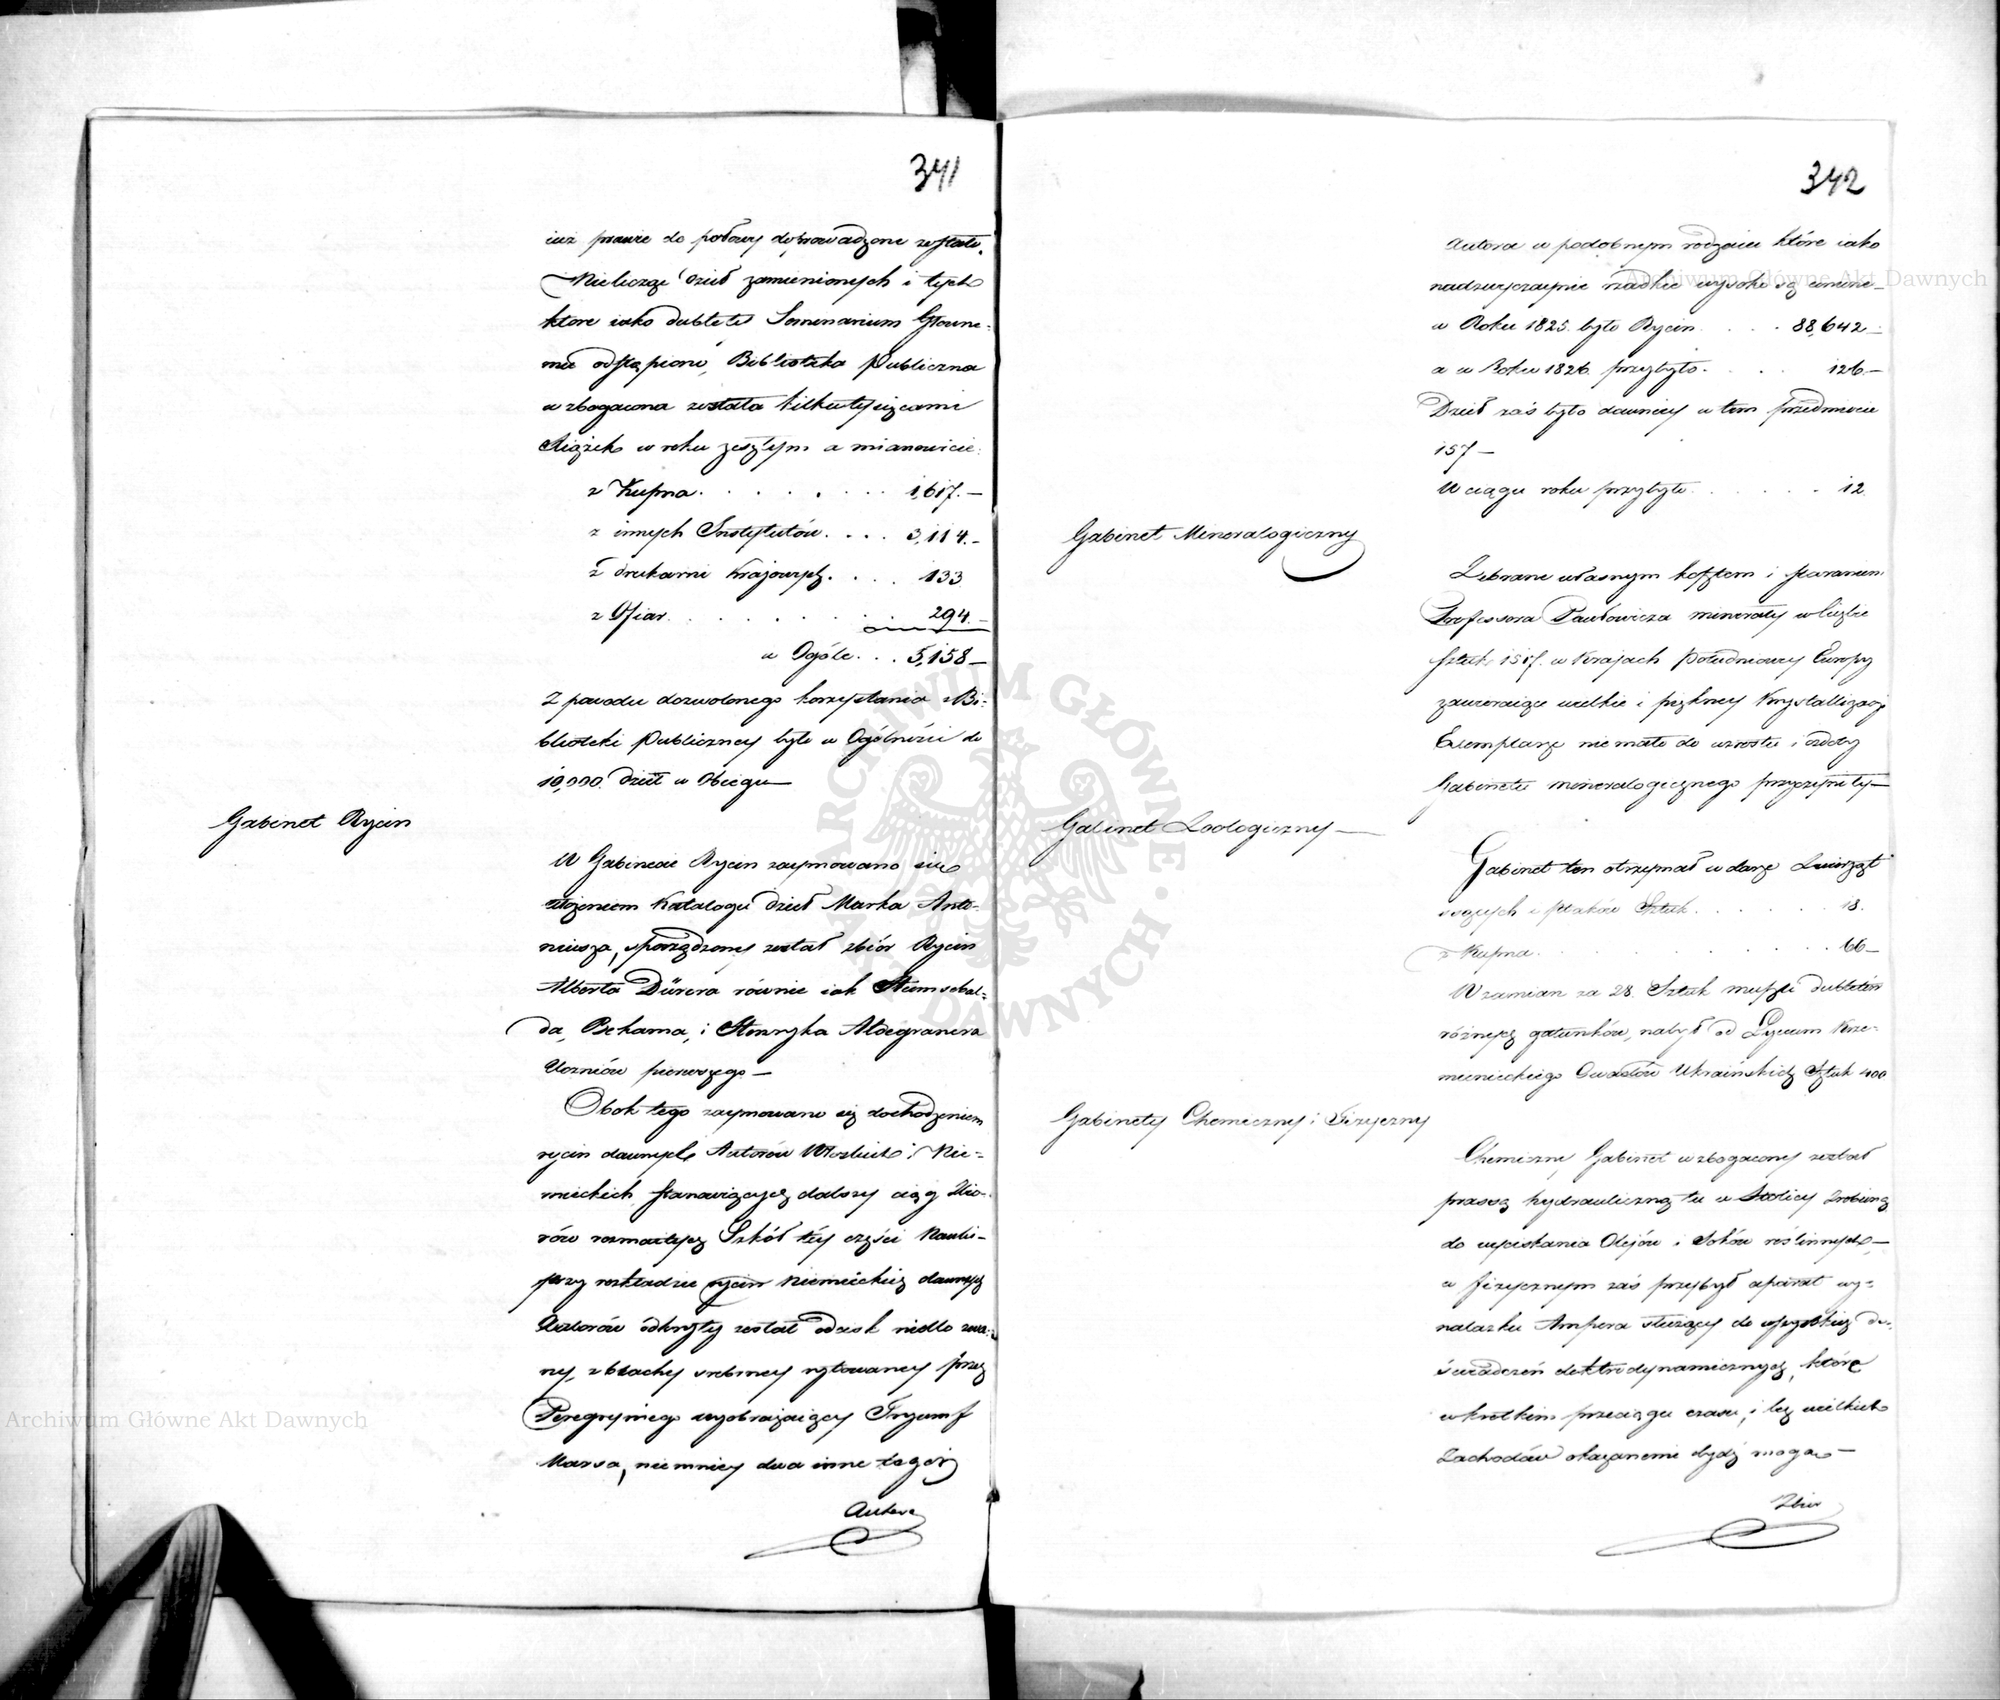 341
iuż prawie do połowy doprowadzone zostało.
Nielicząc dzieł zamienionych i tych
które iako dublety Seminarium Główne-
mu odstąpiono, Biblioteka Publiczna
wzbogacona została kilkutysiącami
Xiążek w roku zeszłym a mianowicie:
z Kupna . . . 1,617.—
z innych Instytutów . . . . 3,114.—
z drukarni Krajowych . . . . 133
z Ofiar . . . 294.—
w Ogóle . . . 5,158—
Z powodu dozwolonego korzystania z Bi-
blioteki Publiczney było w Ogólności do
10,000. dzieł w Obiegu—
Gabinet Rycin
W Gabinecie Rycin zaymowano się
złożeniem Katalogu dzieł Marka Anto-
niusza, sporządzony został zbiór Rycin
Alberta Dürera równie iak
da, Behama, i Henryka Aldegravera
Uczniów pierwszego—
Obok tego zaymowano się dochodzeniem
rycin dawnych Autorów Włoskich i Nie-
mieckich stanowiących dalszy ciąg Zbio-
rów rozmaitych Szkół téy części Nauki—
przy rozkładzie rycin niemieckich dawnych
Autorów odkryty został odcisk niello zwa-
ny, z blachy srebrney rytowaney przez
Peregryniego wyobrażaiący Tryumf
Marsa, niemniey dwa inne tegoż
Autora
342
Autora w podobnym rodzaiu które iako
nadzwyczaynie rzadkie wysoko są cenione—
w Roku 1825. było Rycin . . . 88,642—
a w Roku 1826 przybyło . . . 126.—
Dzieł zaś było dawniey w tem przedmiocie
157—
W ciągu roku przybyło . . . 12.
Gabinet Mineralogiczny
Zebrane własnym kosztem i staraniem
Professora Pawłowicza minerały w liczbie
sztuk 1517. w Krajach południowey Europy
zawieraiące wielkie i piękney Krystallizacyi
Exemplarze nie mało do wzrostu i ozdoby
Gabinetu mineralogicznego przyczyniły—
Gabinet Zoologiczny—
Gabinet ten otrzymał w darze Zwierząt
ssących i ptaków Sztuk . . . 18.
z Kupna . . . 66—
W zamian za 28. Sztuk muszli dubletów
różnych gatunków, nabył od Lyceum Krze-
mienieckiego Owadów Ukraińskich Sztuk 400
Gabinety Chemiczny i Fizyczny
Chemiczny Gabinet wzbogacony został
prassą hydrauliczną tu w Stolicy zrobioną
do wyciskania Olejów i Soków roślinnych—
w fizycznym zaś przybył aparat wy-
nalazku Ampera służący do wszystkich do-
świadczeń elektrodynamicznych, które
w krótkim przeciągu czasu, i bez wielkich
Zachodów okazanemi bydź mogą—
Zbior
ARCHIWUM GŁÓWNE AKT DAWNYCH
Archiwum Główne Akt Dawnych
Archiwum Główne Akt Dawnych